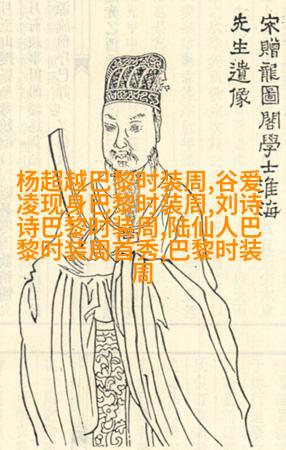 宋贈龍圖閣學士淮海
先生遺像
杨超越巴黎时装周,谷爱
凌现身巴黎时装周,刘诗
诗巴黎时装周,陆仙人巴
黎时装周首秀_巴黎时装
周